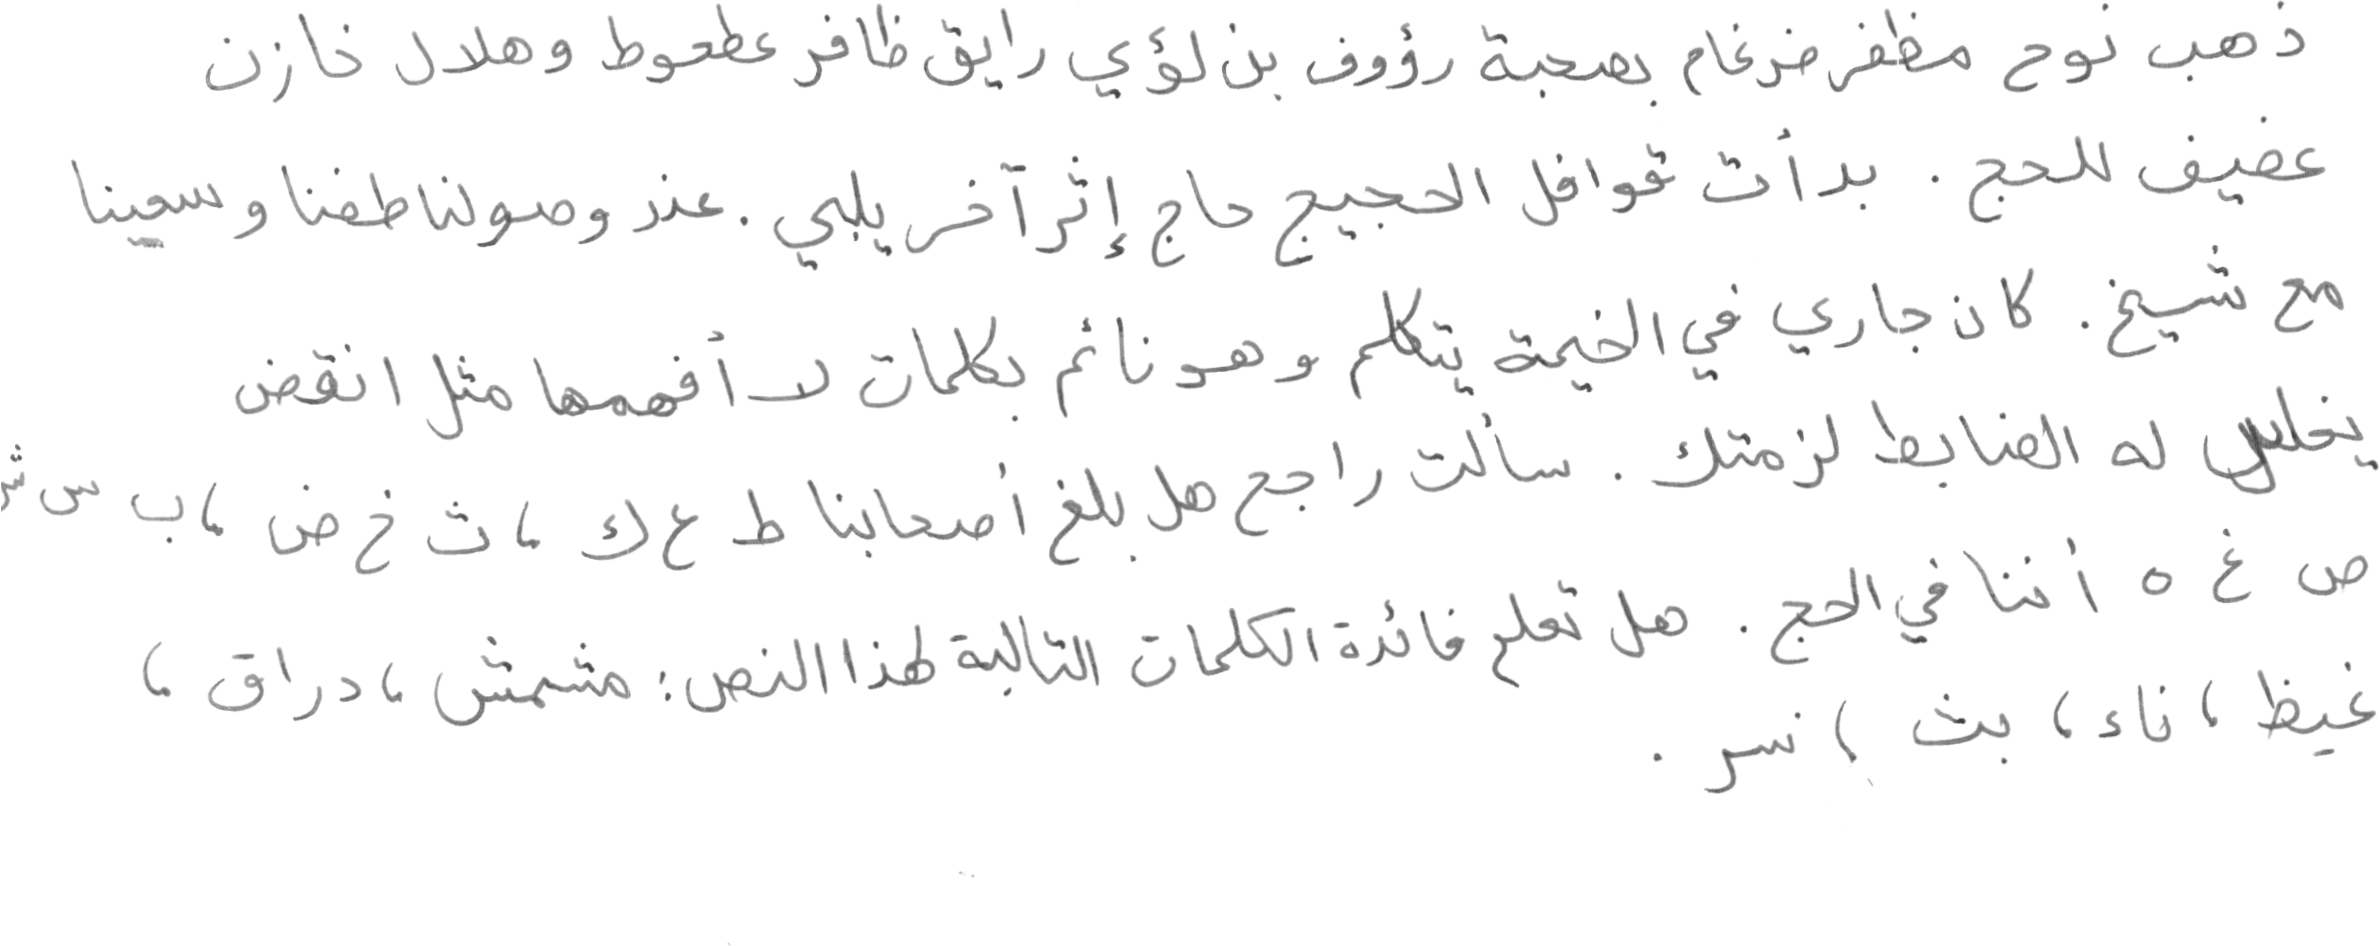 ذهب نوح مظفر ضرغام بصحبة رؤوف بن لؤي رايق ظافر عطعوط وهلال خازن
عفيف للحج . بدأت قوافل الحجيج حاج إثر آخر يلبي . عند وصولنا طفنا وسعينا
مع شيخ . كان جاري في الخيمة يتكلم وهو نائم بكلمات لا أفهمها مثل انقض
يخلص له الضابط لزمتك . سألت راجح هل بلغ أصحابنا ط ع ك ، ث خ ض ، ب س ش
ص غ ه أننا في الحج . هل تعلم فائدة الكلمات التالية لهذا النص : مشمش ، دراق ،
غيظ ، ناء ، بث ، نسر .